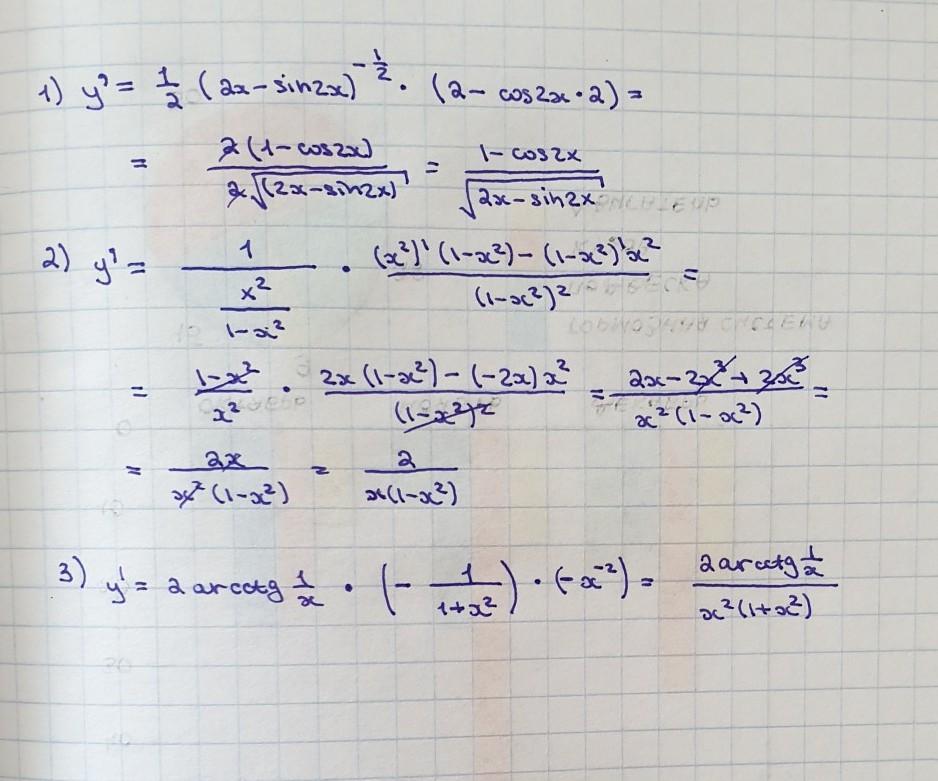 1) y' = 1/2 (2x - sin2x)^(-1/2) · (2 - cos2x · 2) =
= 2(1 - cos2x) / 2√(2x - sin2x) = 1 - cos2x / √2x - sin2x
2) y' = 1 / (x²/(1-x²)) · (x²)'(1-x²) - (1-x²)'x² / (1-x²)² =
= 1-x² / x² · 2x(1-x²) - (-2x)x² / (1-x²)² = 2x - 2x³ + 2x³ / x²(1-x²) =
= 2x / x²(1-x²) = 2 / x(1-x²)
3) y' = 2arcctg 1/x · (- 1/(1+x²)) · (-x⁻²) = 2arcctg 1/x / x²(1+x²)